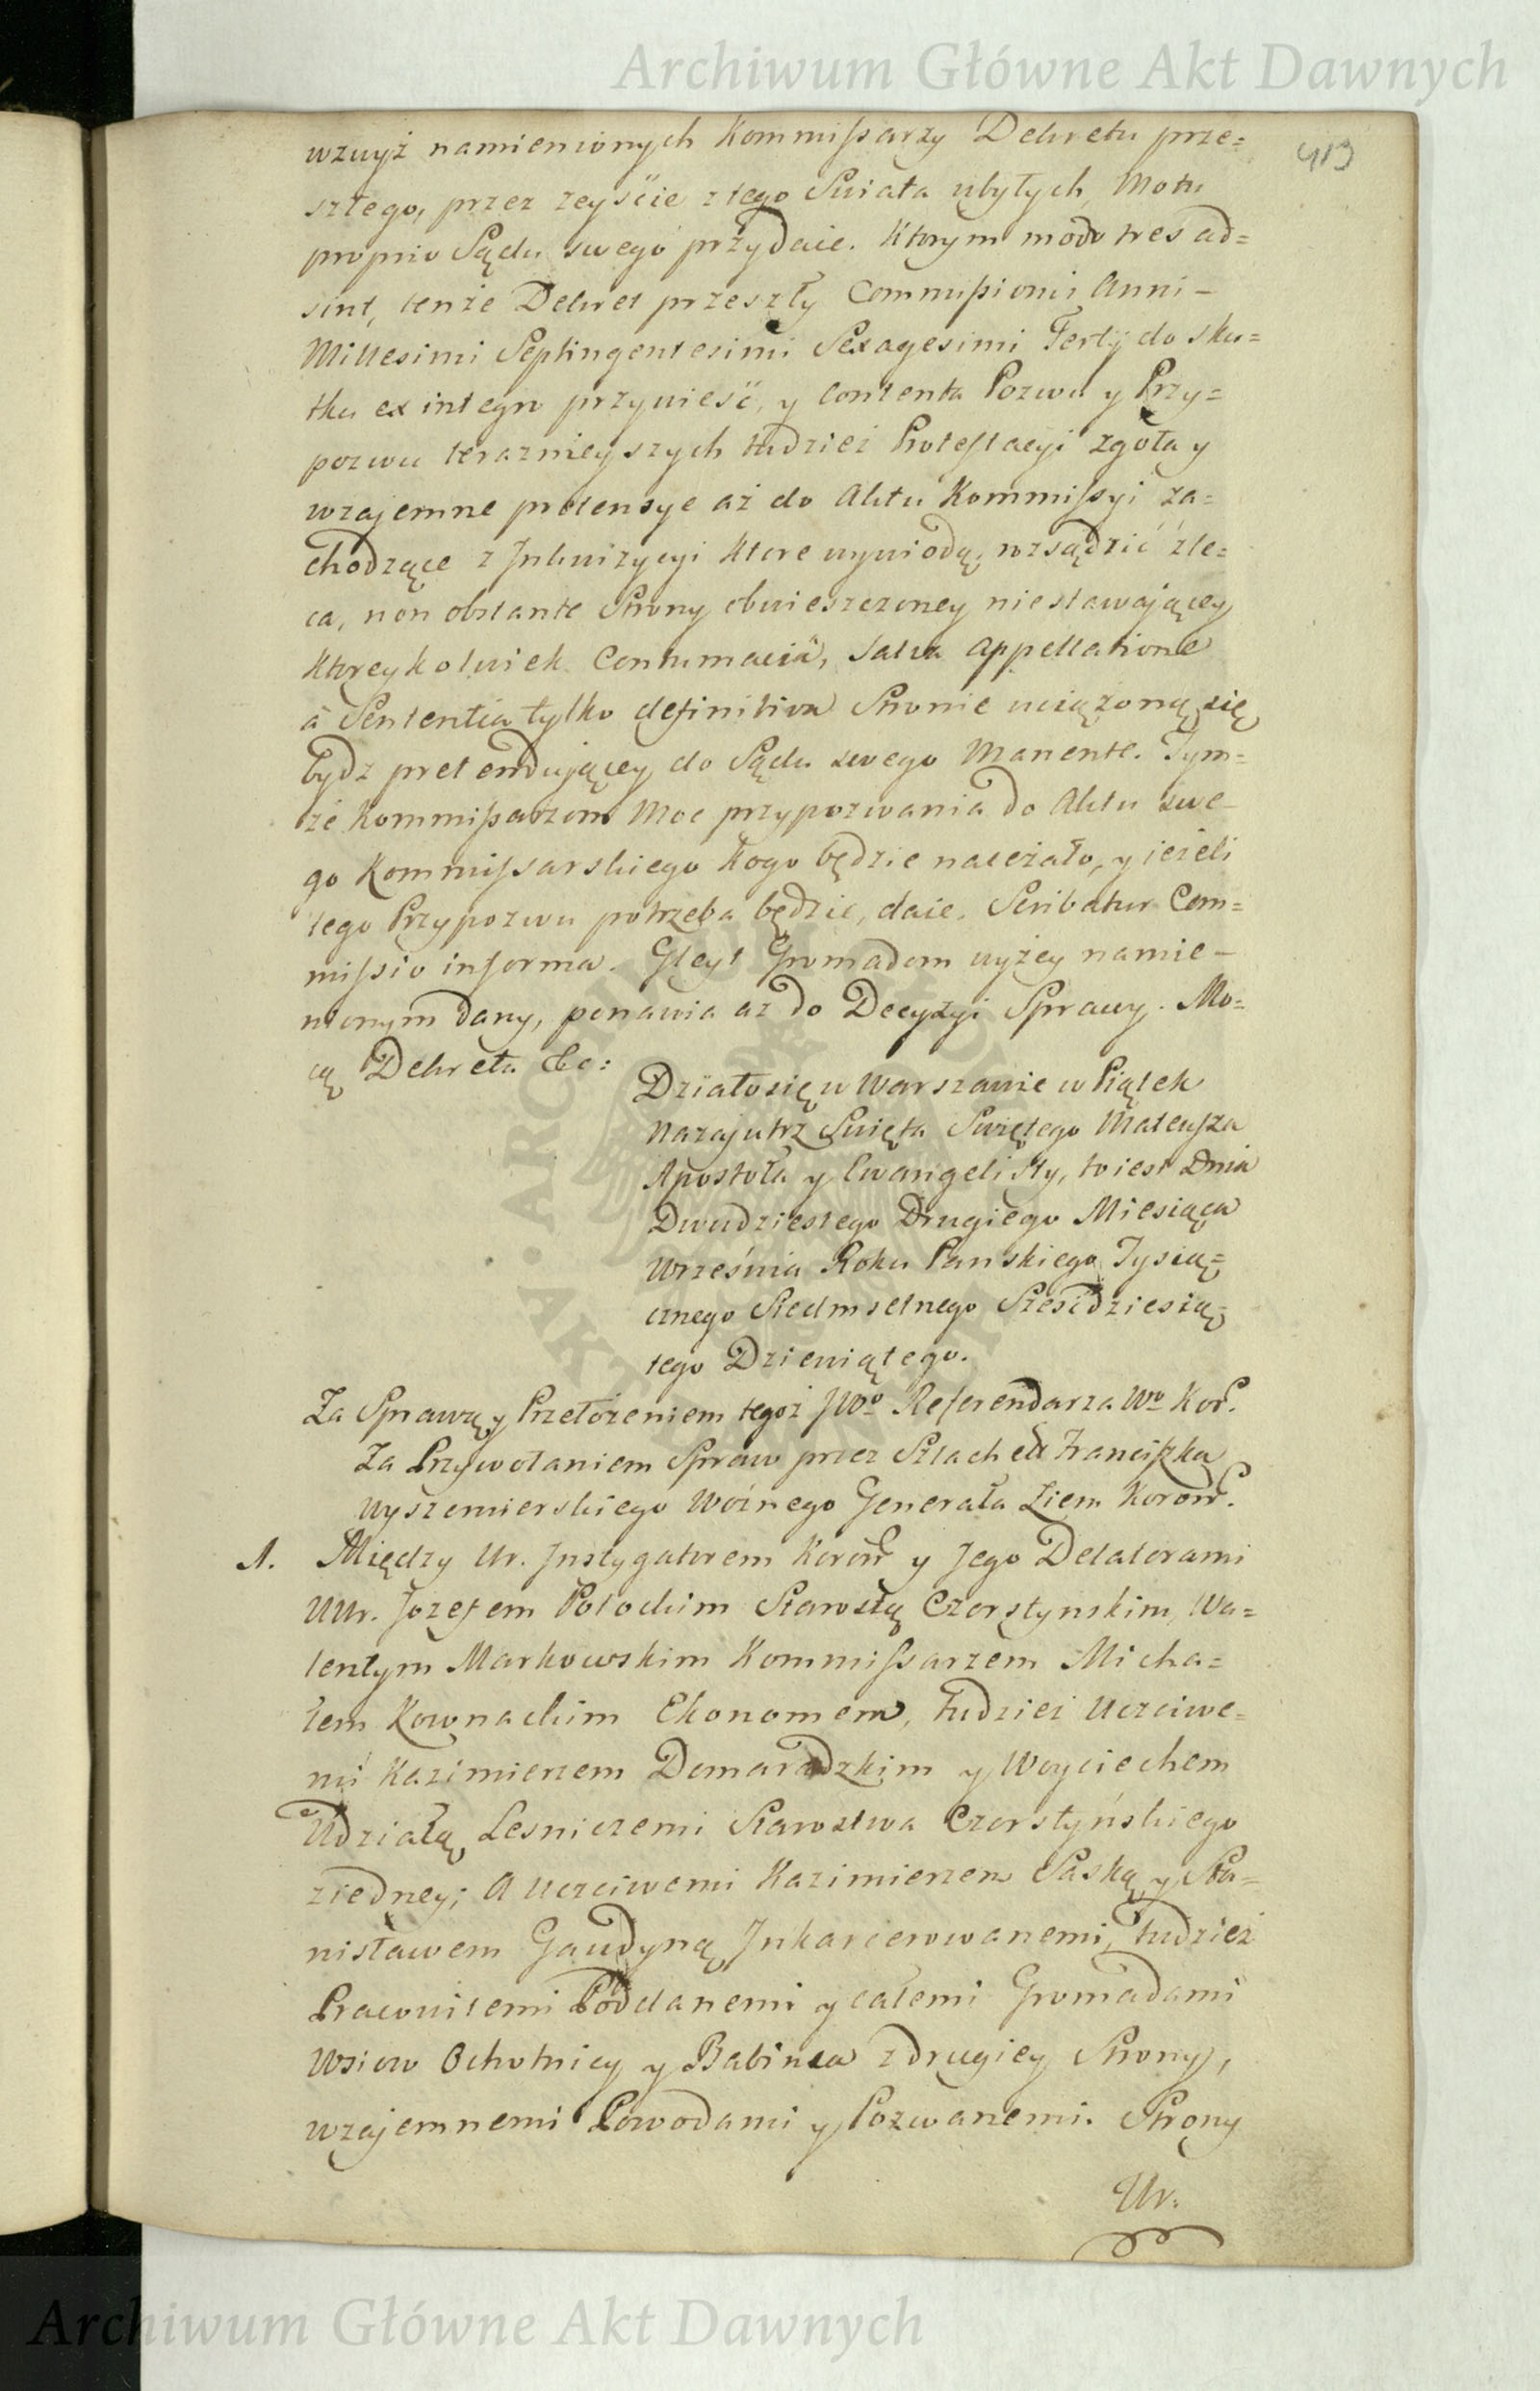 Archiwum Główne Akt Dawnych
413
wzwyż namienionych Kommissarzy Dekretu prze=
szłego, przez zeyście z tego Swiata ubyłych, Motu
proprio Sądu swego przydaie. Ktorym modo tres ad=
sint, tenże Dekret przeszły Commissionis Anni –
Millesimi Septingentesimi Sexagesimi Tertÿ do sku=
tku ex integro przywieść, y Contenta Pozwu y Przy=
pozwu teraznieyszych tudzież Protestacyi zgoła y
wzajemne pretensye aż do Aktu Kommissyi za=
chodzące z Inkwizycyi ktore wywiodą, rozsądzić zle=
ca, non obstante Strony obwieszczoney niestawaiącey
ktoreykolwiek Contumaciâ, Salva Appellatione
à Sententia tylko definitiva Stronie uciążoną się
bydz pretenduiącey do Sądu swego Manente. Tym=
że Kommissarzom Moc przypozwania do Aktu swe–
go Kommissarskiego kogo będzie należało, y ieżeli
tego Przypozwu potrzeba będzie, daie. Scribatur Com=
missio in forma. Gleyt Gromadom wyżey namie–
nionym dany, ponawia aż do Decyzyi Sprawy. Mo=
cą Dekretu &c:
Działo się w Warszawie w Piątek
Nazajutrz Swięta Swiętego Mateusza
Apostoła y Ewangelisty, to iest Dnia
Dwudziestego Drugiego Miesiąca
Września Roku Panskiego Tysią=
cznego Siedmsetnego Sześćdziesią=
tego Dziewiątego.
Za Sprawą y Przełożeniem tegoż JWo Referendarza Wo Kor.
Za Przywołaniem Spraw przez Szlachet Franciszka
Wyszemierskiego Woźnego Generała Ziem Koron.
1. Między Ur. Instygatorem Koron y Jego Delatorami
UUr. Jozefem Potockim Starostą Czorstynskim, Wa=
lentym Markowskim Kommissarzem Micha=
łem Kownackim Ekonomem, tudzież Uczciwe=
mi Kazimierzem Domaradzkim y Woyciechem
Udziałą Lesniczemi Starostwa Czorstyńskiego
z iedney; A Uczciwemi Kazimierzem Paską y Sta=
nisławem Gaudyną Inkarcerowanemi, tudzież
Pracowitemi Poddanemi y całemi Gromadami
Wsiow Ochotnicy y Babinca z drugiey Strony,
wzajemnemi Powodami y Pozwanemi. Strony
Ur.
Archiwum Główne Akt Dawnych